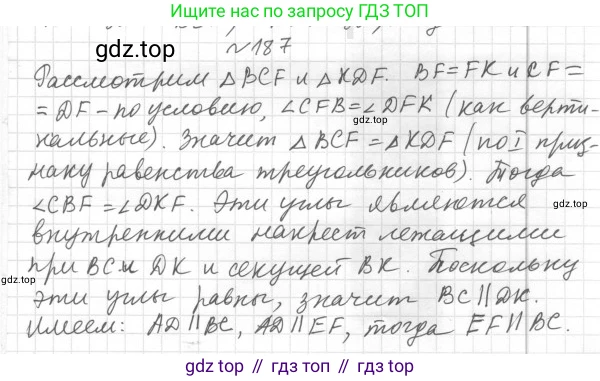 Ищите нас по запросу ГДЗ ТОП
gdz.top
№187
Рассмотрим △BCF и △KDF. BF=FK и CF=
gdz.top
= DF - по условию, ∠CFB=∠DFK (как верти-
кальные). Значит △BCF = △KDF (по I приз-
наку равенства треугольников). Тогда
∠CBF = ∠DKF. Эти углы являются
внутренними накрест лежащими
при BC и DK и секущей BK. Поскольку
gdz.top
эти углы равны, значит BC∥DK.
Имеем: AD∥BC, AD∥EF, тогда EF∥BC.
gdz top // гдз топ // gdz.top